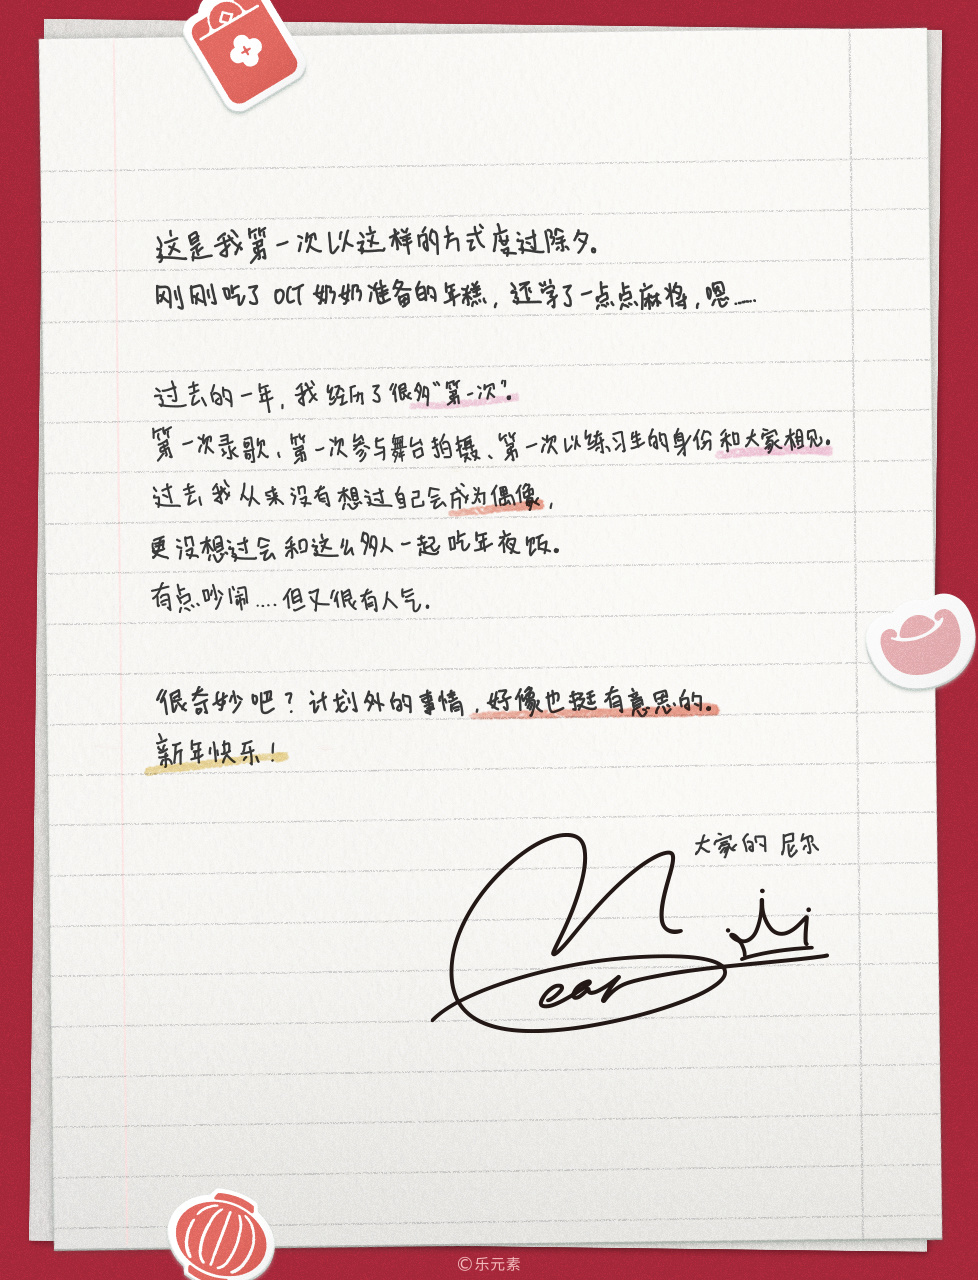 这是我第一次以这样的方式度过除夕。
刚刚吃了 OCT 奶奶准备的年糕，还学了一点点麻将，嗯……
过去的一年，我经历了很多“第一次”。
第一次录歌、第一次参与舞台拍摄、第一次以练习生的身份和大家相见。
过去我从来没有想过自己会成为偶像，
更没想过会和这么多人一起吃年夜饭。
有点吵闹....但又很有人气。
很奇妙吧？计划外的事情，好像也挺有意思的。
新年快乐！
大家的 尼尔
Near
©乐元素